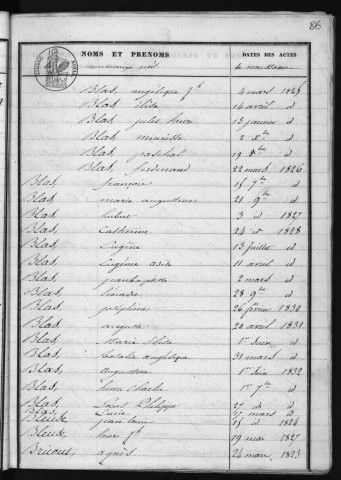 86
NOMS ET PRENOMS DATES DES ACTES
de naissance
Blas, angélique 4 mars 1825
Blas, élisa 16 avril d
Blas, jules henri 13 janvier d
Blas, 2 Xbre d
Blas, paschal 19 8bre d
Blas, ferdinand 22 mars 1826
Blas, françois 15 7bre d
Blas, marie augustine 21 9bre d
Blas, 3 d 1827
Blas, Catherine 24 d 1828
Blas, Eugène 13 juillet d
Blas, Eugénie 11 avril d
Blas, jeanbaptiste 2 mars d
Blas, 28 9bre d
Blas, joséphine 26 février 1830
Blas, auguste 20 avril 1831
Blas, Marie Elisa 1er Juin d
Blas, angélique 31 mars d
Blas, augustine 1er Juin 1832
Blas, henri Charles 1er 7bre d
Blas, Louis Philippe 27 d d
Blas, Lucie 17 mars d
Bleuse, jean louis 15 d 1824
Bleuse, henri 19 mai 1827
Bricout, agnès 24 mars 1823